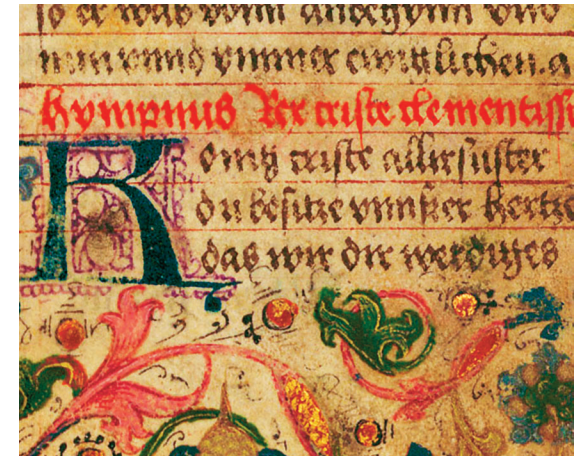 so er was vonn anbegynn vnd
nun vnnd ymmer ewicklichen. a
hympnus Rex criste clementissi
Konig criste allirsuster
du besitze vnnser hertze
das wir dir werdiges